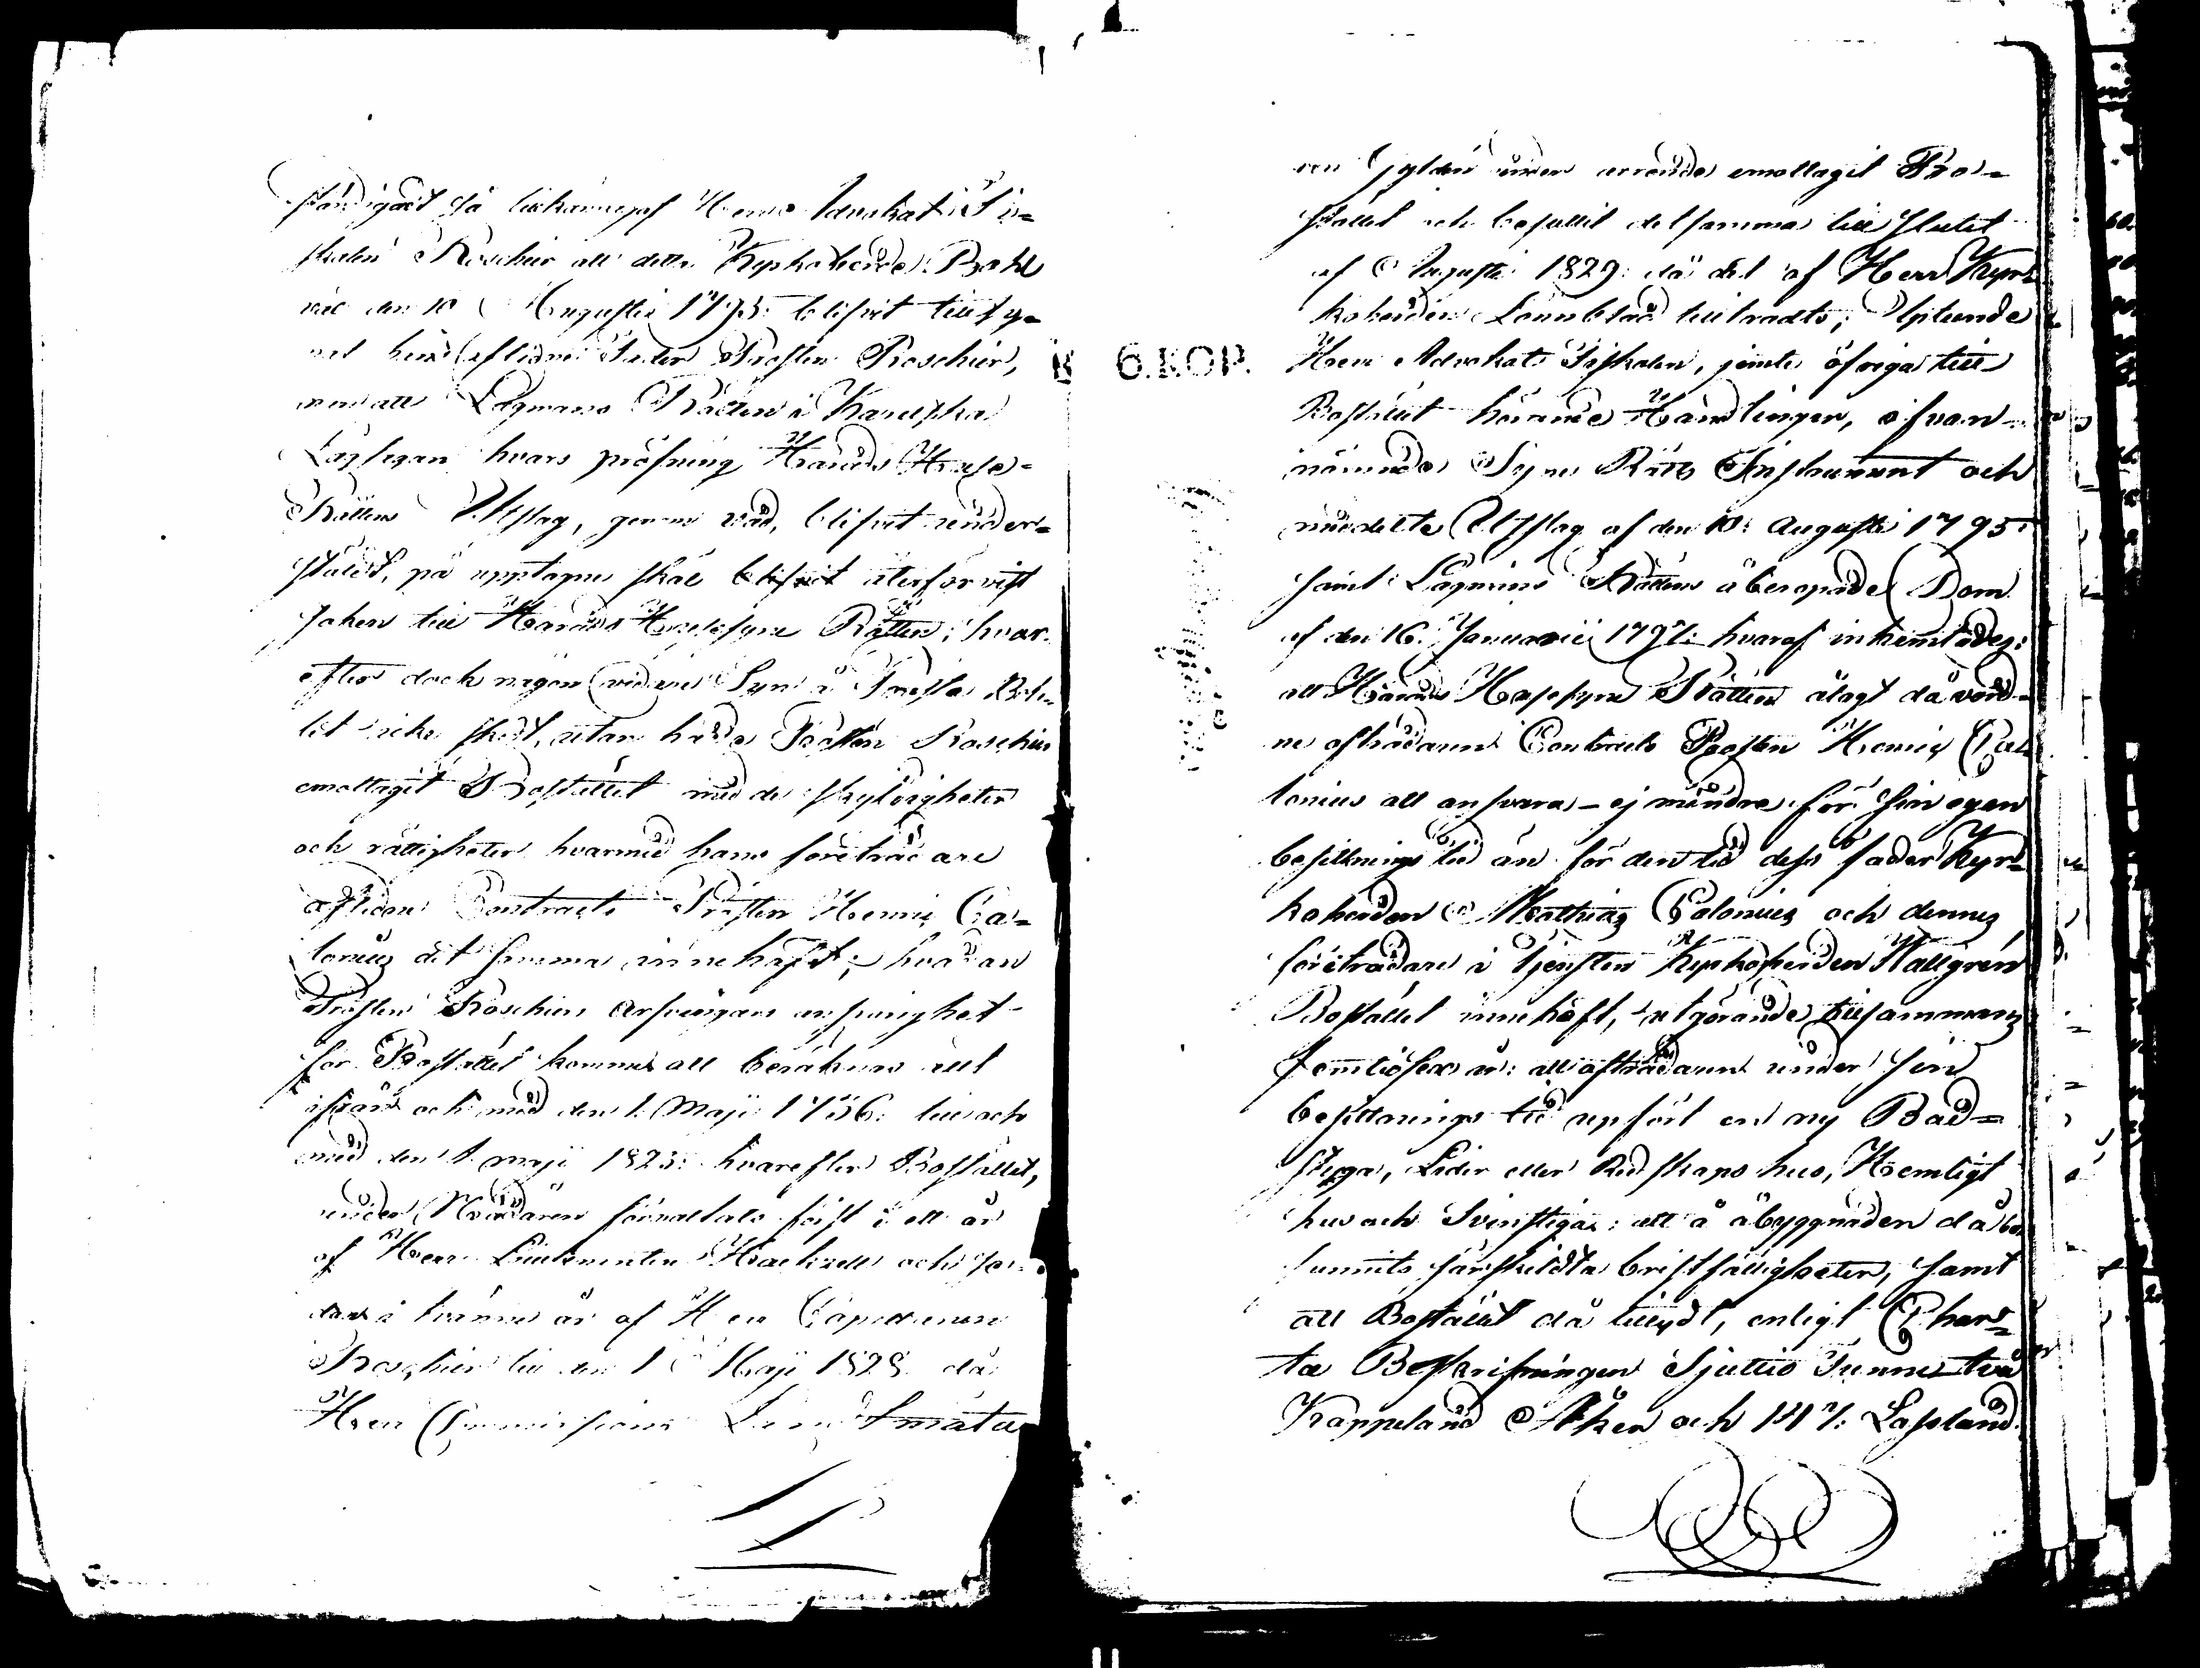 ständigast så tillkännagaf Herr Advokat Fis=
kalen Roschier att detta Kyrkoherde Bohl
vid den 10 Augusti 1795 blifvit tillsy=
nat hans aflidne Fader Prosten Roschier,
men att Lagmans Rätten i Karelska
Lagsagan hvars pröfning Härads Husesyns
Rättens Utslag, genom vad, blifvit under=
stäldt, på upptagne skäl blifvit återförvist
saken till Härads Husesyne Rätten; hvar
efter dock någon vidare Syn å Prestabolet
icke skedt, utan hade Prosten Roschier
emottagit Bostället med de skyldigheter
och rättigheter hvarmed hans företrädare
aflidne Contracts Prosten Henric Ca=
lonius det samma innehaft; hvadan
Prosten Roschiers Arfvingars ansvarighet
för Bostället kommer att beräknas allt
ifrån och med den 1 Maji 1796: till och
med den 1 Maji 1825: hvarefter Bostället,
under Nådåren förvaltats först i ett år
af Herr Lieutenanten och se=
dan i tvänne år af Herr Capellanen
Roschier till den 1 Maji 1828 då
Herr Commissions Landtmäta
ren Gyldén under arrende emottagit Bo=
stället och besuttit detsamma till slutet
af Augusti 1829: då det af Herr Kyr=
koherden Lönnblad tillträdts; Uplemnade
Herr Advokat Fiskalen, jemte öfriga till
Bostället hörande Handlingar, ofvan=
nämnde Syne Rätts Instrument och
meddelte Utslag af den 10: Augusti 1795:
samt Lagmans Rättens åberopade Dom
af den 16. Januarii 1797: hvaraf inhemtades:
att Härads Husesyne Rätten ålagt då vara=
ne afträdaren Contracts Prosten Henric Ca
lonius att ansvara ej mindre för sin egen
besittnings tid än för den tid dess fader Kyr=
koherden Mathias Calonius och dennes
företrädare i Tjensten Kyrkoherden Wallgren
Bostället innehaft, utgörande tillsammans
femtiosex år: att afträdaren under sin
besittnings tid upfört en ny Bad=
stuga, Lider eller Redskaps hus, Hemligt
hus och Svinstiga: att å åbyggnaden då be
funnits särskildta bristfälligheter, samt
att Bostället då tillydt, enligt Char=
tæ Beskrifningen Sjuttio Tunne två
Kappeland Åker och 147: Lassland
6.KOP.